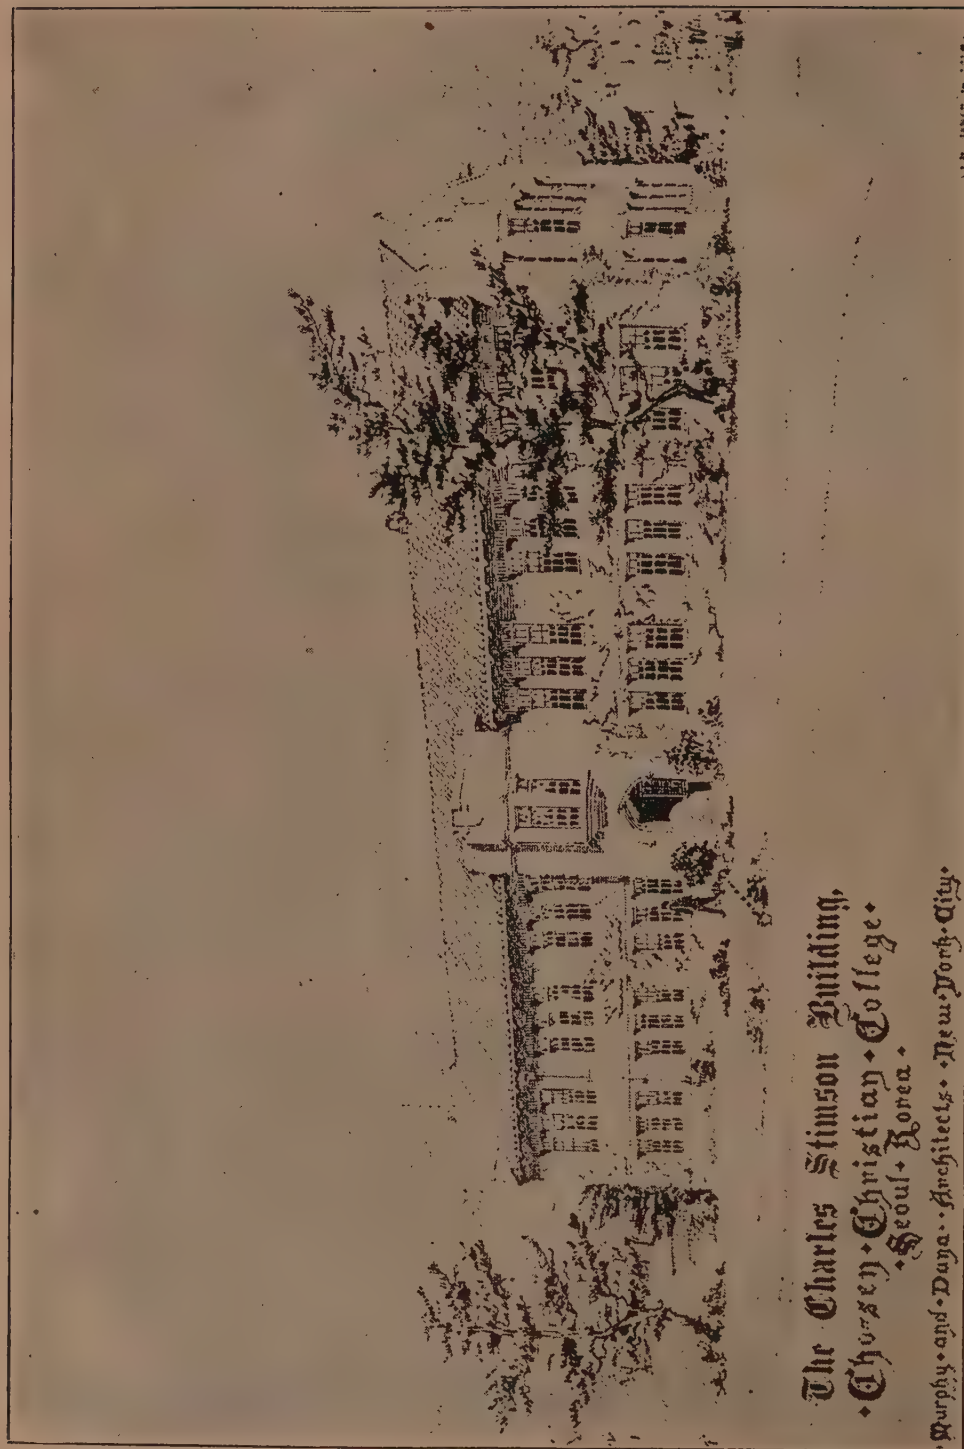 The Charles Stimson Building,
·Cho=sen·Christian·College·
·Seoul·Korea·
·Murphy·and·Dana··Architects··New·York·City·